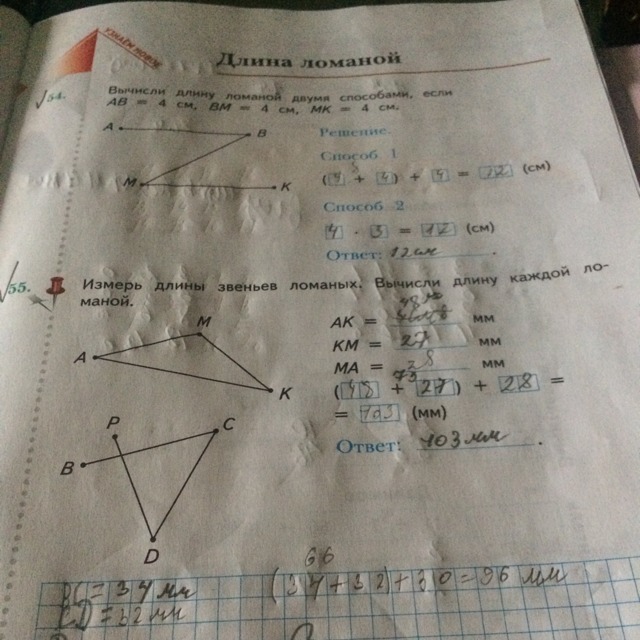 УЗНАЁМ НОВОЕ
Длина ломаной
√54.
Вычисли длину ломаной двумя способами, если
AB = 4 см, BM = 4 см, MK = 4 см.
A B
M K
Решение.
Способ 1
(4 + 4) + 4 = 12 (см)
Способ 2
4 · 3 = 12 (см)
Ответ: 12 см.
√55.
Измерь длины звеньев ломаных. Вычисли длину каждой ло-
маной.
A M K
AK = 48 мм
KM = 27 мм
MA = 28 мм
75
(48 + 27) + 28 =
= 103 (мм)
Ответ: 103 мм.
P C
B
D
66
BC = 34 мм (34+32)+30=96 мм
CD = 32 мм